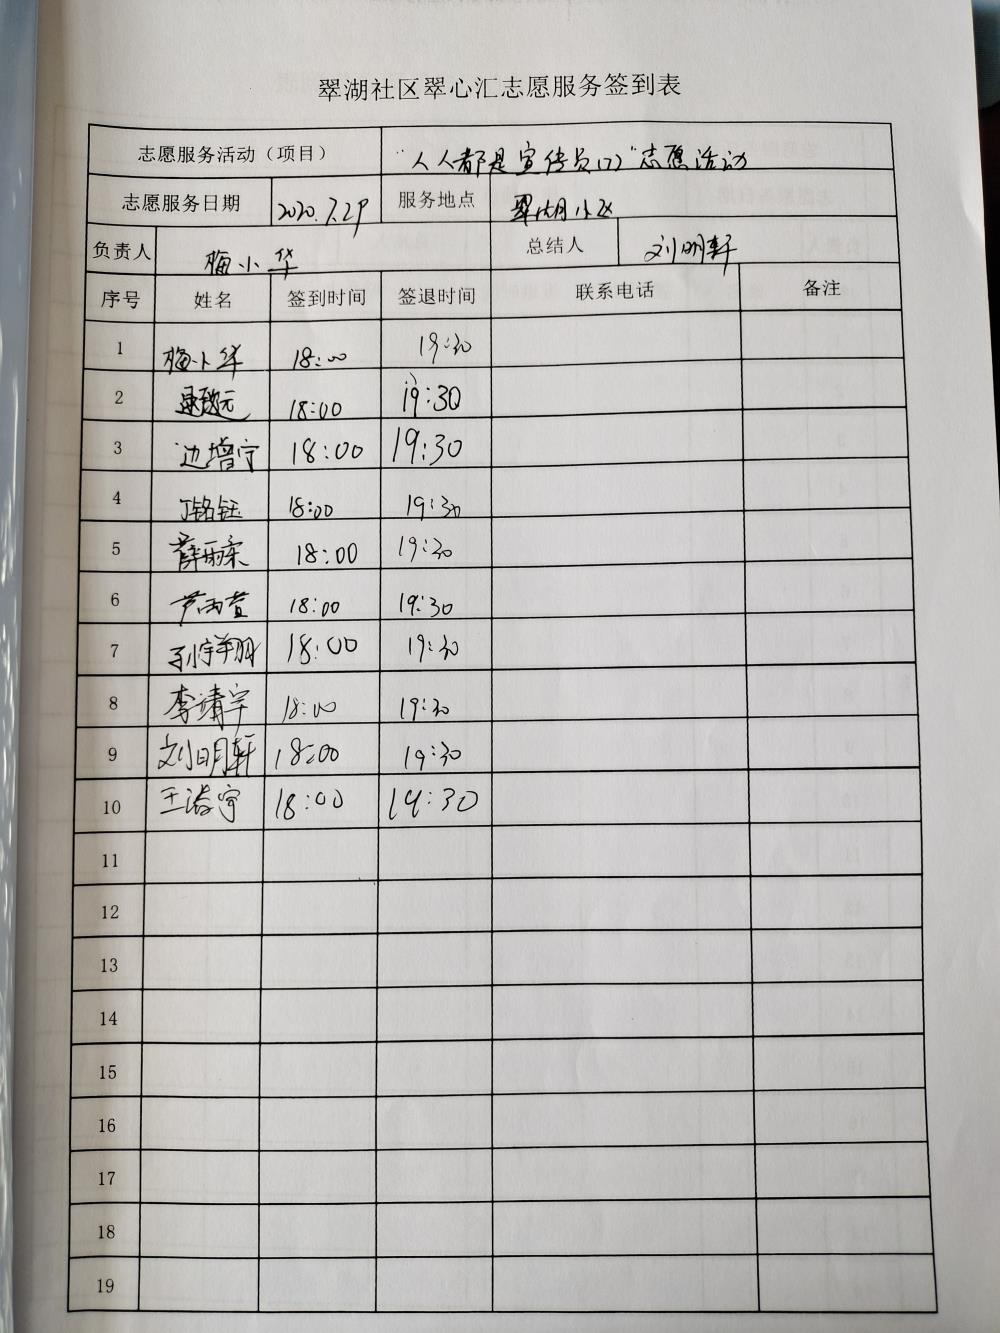 翠湖社区翠心汇志愿服务签到表
志愿服务活动（项目） “人人都是宣传员(2)”志愿活动
志愿服务日期 2020.7.29 服务地点 翠湖小区
负责人 梅小华 总结人 刘明轩
序号 姓名 签到时间 签退时间 联系电话 备注
1 梅小华 18:00 19:30
2 18:00 19:30
3 边增宁 18:00 19:30
4 丁铭钰 18:00 19:30
5 18:00 19:30
6 芦雨萱 18:00 19:30
7 18:00 19:30
8 李靖宇 18:00 19:30
9 刘明轩 18:00 19:30
10 18:00 19:30
11
12
13
14
15
16
17
18
19